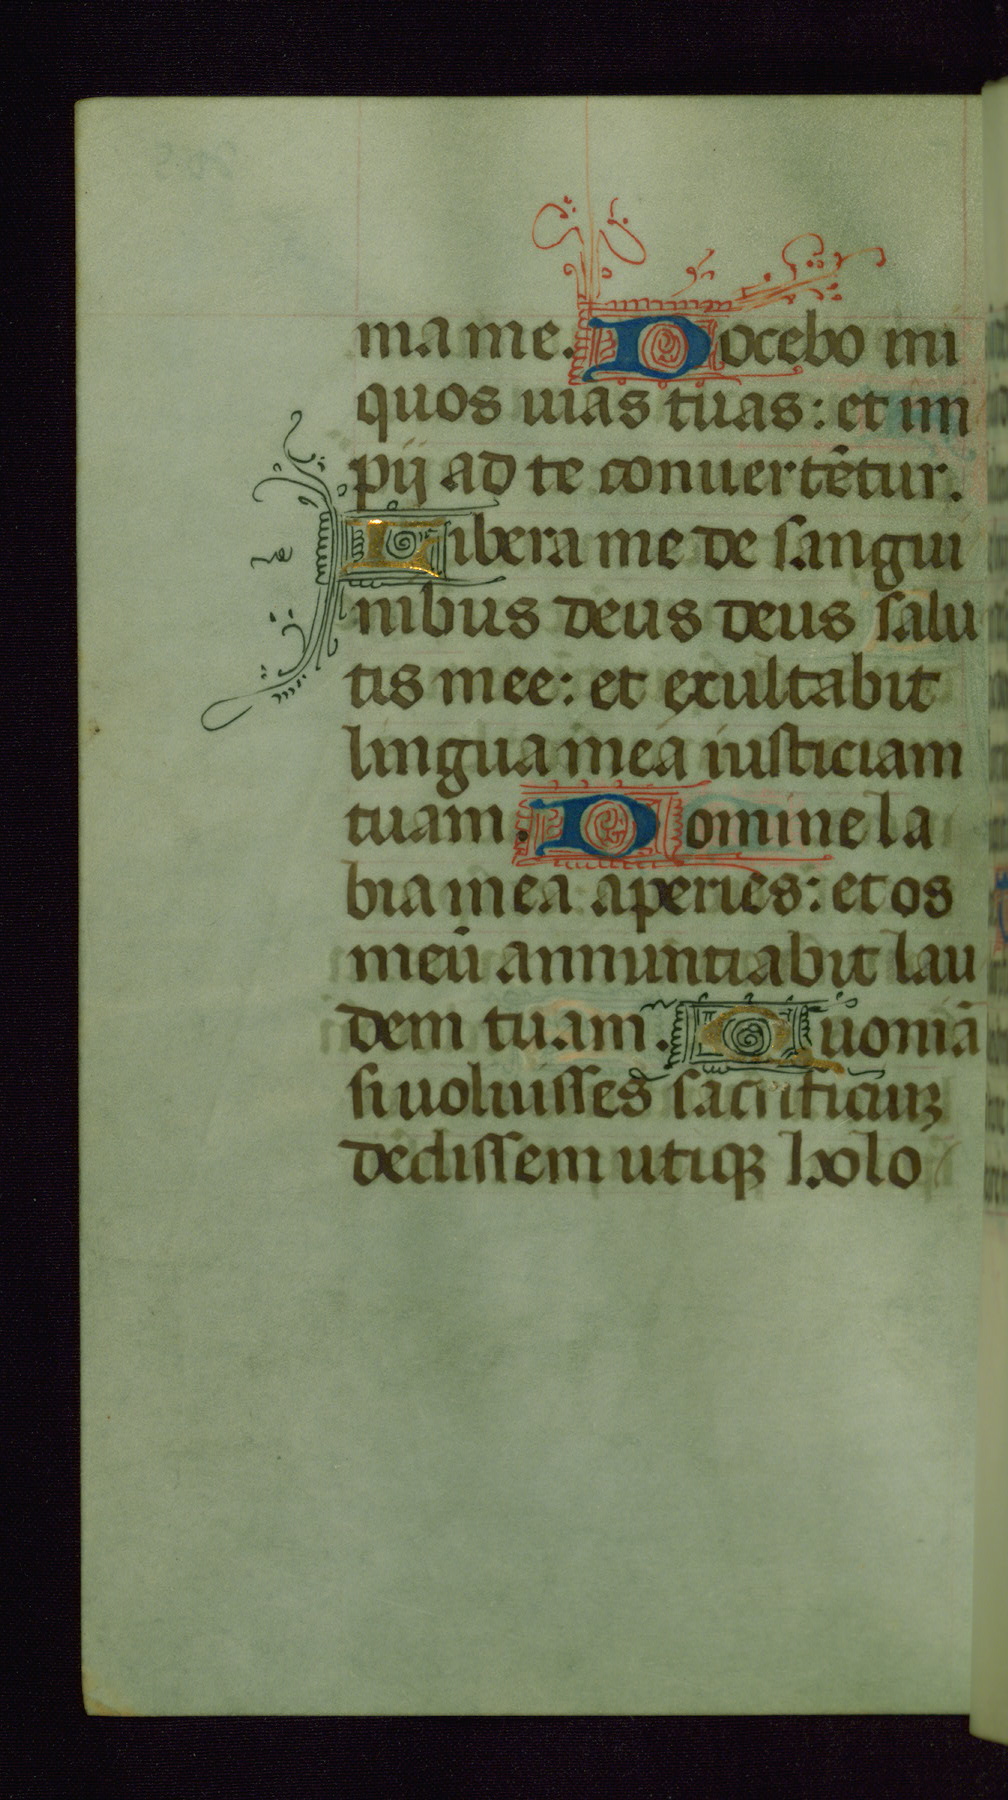 ma me. Docebo ini
quos uias tuas: et im
pij ad te conuertētur.
Libera me de sangui
nibus deus deus salu
tis mee: et exultabit
lingua mea iusticiam
tuam. Domine la
bia mea aperies: et os
meū annuntiabit lau
dem tuam. Quoniā
si uoluisses sacrificiuꝫ
dedissem utiqꝫ holo